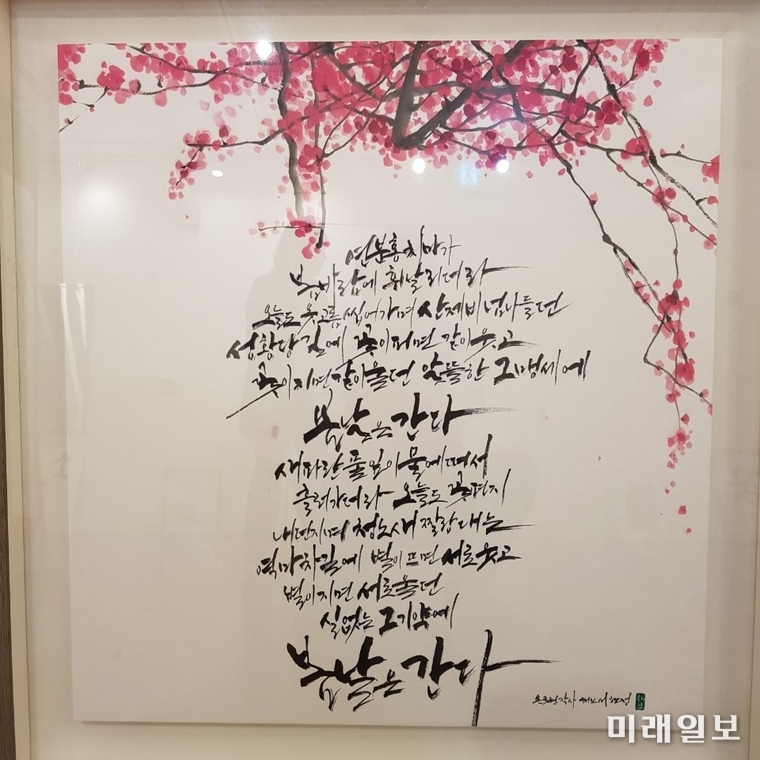 연분홍 치마가
봄바람에 휘날리더라
오늘도 옷고름 씹어가며 산제비 넘나들던
성황당 길에 꽃이 피면 같이 웃고
꽃이 지면 같이 울던 알뜰한 그 맹세에
봄날은 간다
새파란 풀잎이 물에 떠서
흘러가더라 오늘도 꽃편지
내던지며 청노새 짤랑대는
역마차 길에 별이 뜨면 서로 웃고
별이 지면 서로 울던
실없는 그 기약에
봄날은 간다
작사
미래일보